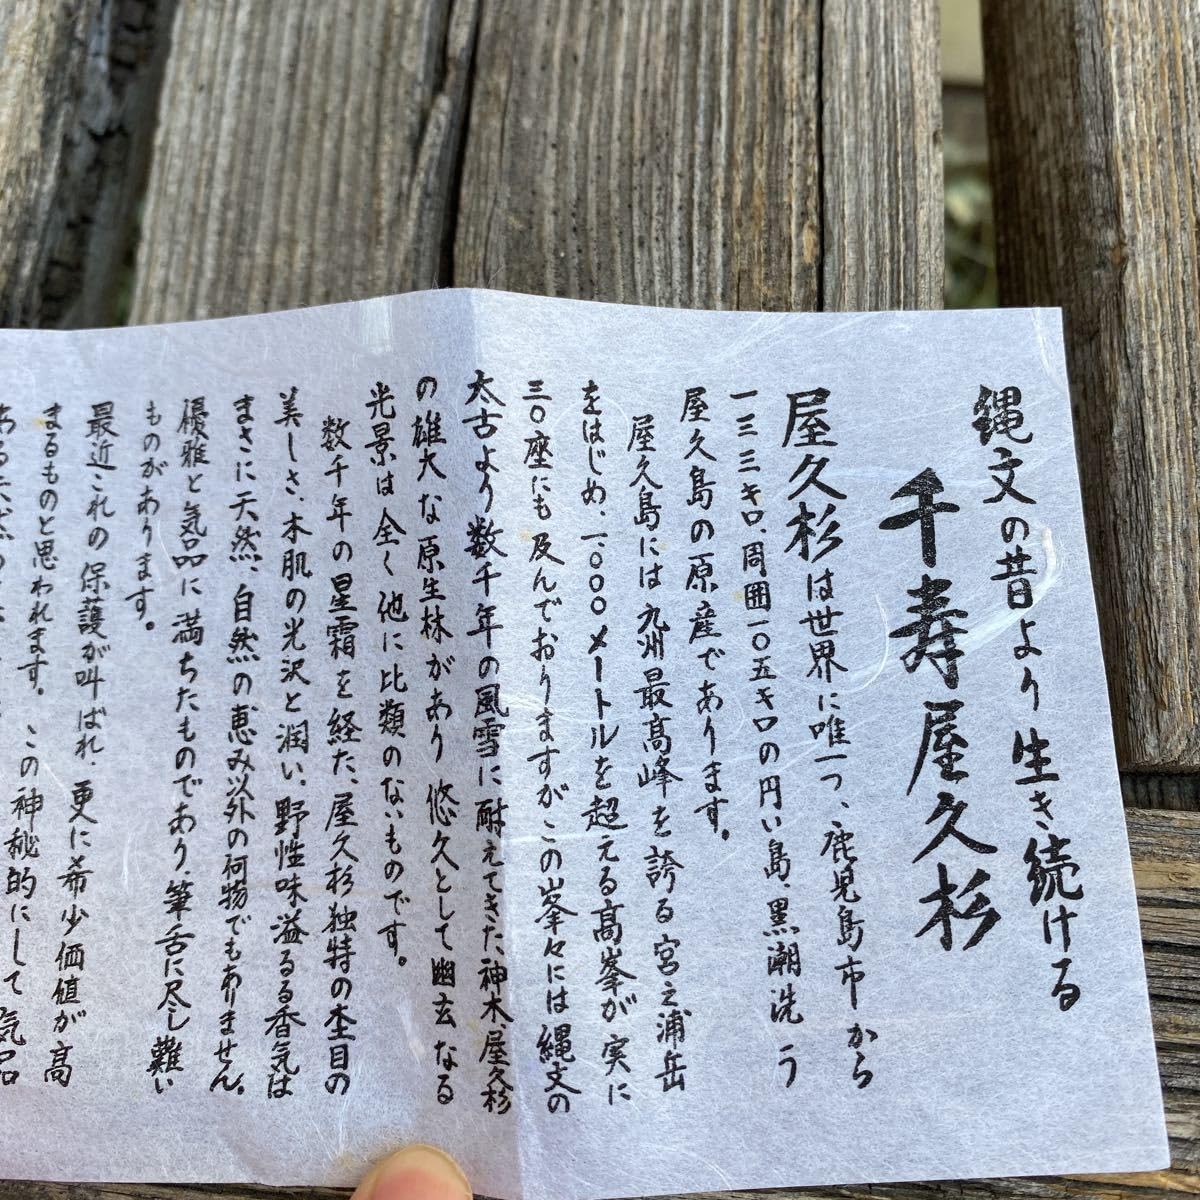 縄文の昔より生き続ける
千寿屋久杉
屋久杉は世界に唯一つ、鹿児島市から
一三三キロ、周囲一〇五キロの円い島、黒潮洗う
屋久島の原産であります。
屋久島には九州最高峰を誇る宮之浦岳
をはじめ、一、〇〇〇メートルを超える高峯が実に
三〇座にも及んでおりますがこの峯々には縄文の
太古より数千年の風雪に耐えてきた神木、屋久杉
の雄大な原生林があり悠久として幽玄なる
光景は全く他に比類のないものです。
数千年の星霜を経た、屋久杉独特の杢目の
美しさ、木肌の光沢と潤い、野性味溢るる香気は
まさに天然、自然の恵み以外の何物でもありません。
優雅と気品に満ちたものであり、筆舌に尽し難い
ものがあります。
最近これの保護が叫ばれ、更に希少価値が高
まるものと思われます。この神秘的にして気品
ある天然の